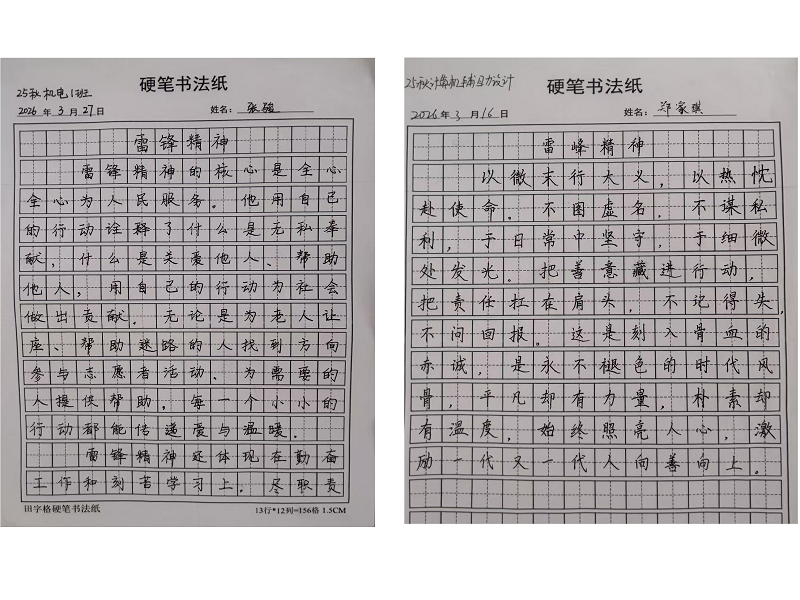 硬笔书法纸
25秋机电1班
2026年3月27日 姓名: 张骏
雷锋精神
雷锋精神的核心是全心
全心为人民服务。他用自己
的行动诠释了什么是无私奉
献,什么是关爱他人、帮助
他人,用自己的行动为社会
做出贡献。无论是为老人让
座、帮助迷路的人找到方向
参与志愿者活动、为需要的
人提供帮助,每一个小小的
行动都能传递爱与温暖。
雷锋精神还体现在勤奋
工作和刻苦学习上。尽职责
田字格硬笔书法纸 13行*12列=156格 1.5CM
25秋计算机辅助设计
硬笔书法纸
2026年3月16日 姓名: 郑家琪
雷峰精神
以微末行大义,以热忱
赴使命。不图虚名,不谋私
利,于日常中坚守,于细微
处发光。把善意藏进行动,
把责任扛在肩头,不记得失,
不问回报。这是刻入骨血的
赤诚,是永不褪色的时代风
骨,平凡却有力量,朴素却
有温度,始终照亮人心,激
励一代又一代人向善向上。